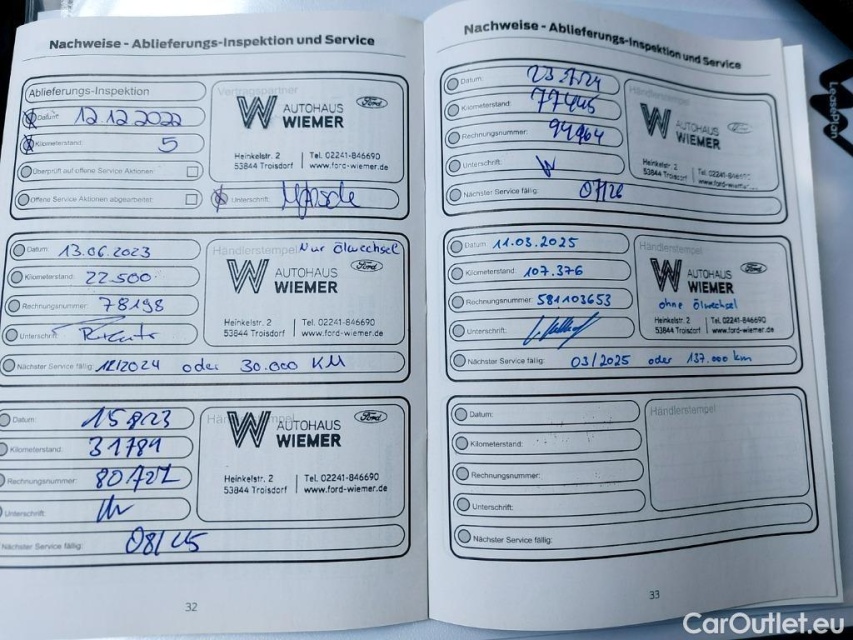 Nachweise - Ablieferungs-Inspektion und Service
Ablieferungs-Inspektion
Datum: 12 12 2022
Kilometerstand: 5
Überprüft auf offene Service Aktionen:
Offene Service Aktionen abgearbeitet:
Vertragspartner
W AUTOHAUS WIEMER Ford
Heinkelstr. 2 | Tel. 02241-846690
53844 Troisdorf | www.ford-wiemer.de
Unterschrift:
Datum: 13.06.2023
Kilometerstand: 22.500
Rechnungsnummer: 78198
Unterschrift:
Händlerstempel Nur Ölwechsel
W AUTOHAUS WIEMER Ford
Heinkelstr. 2 | Tel. 02241-846690
53844 Troisdorf | www.ford-wiemer.de
Nächster Service fällig: 12/2024 oder 30.000 KM
Datum: 15 8 23
Kilometerstand: 31789
Rechnungsnummer:
Unterschrift:
W AUTOHAUS WIEMER Ford
Heinkelstr. 2 | Tel. 02241-846690
53844 Troisdorf | www.ford-wiemer.de
Nächster Service fällig: 08/25
32
Nachweise - Ablieferungs-Inspektion und Service
Datum: 23.7.24
Kilometerstand: 77445
Rechnungsnummer: 94964
Unterschrift:
Nächster Service fällig: 07/26
Händlerstempel
W AUTOHAUS WIEMER Ford
Heinkelstr. 2 | Tel. 02241-846690
53844 Troisdorf | www.ford-wiemer.de
Datum: 11.03.2025
Kilometerstand: 107.376
Rechnungsnummer: 581103653
Unterschrift:
Händlerstempel
W AUTOHAUS WIEMER Ford
ohne Ölwechsel
Heinkelstr. 2 | Tel. 02241-846690
53844 Troisdorf | www.ford-wiemer.de
Nächster Service fällig: 03/2025 oder 137.000 km
Datum:
Kilometerstand:
Rechnungsnummer:
Unterschrift:
Händlerstempel
Nächster Service fällig:
33
LeasePlan
CarOutlet.eu